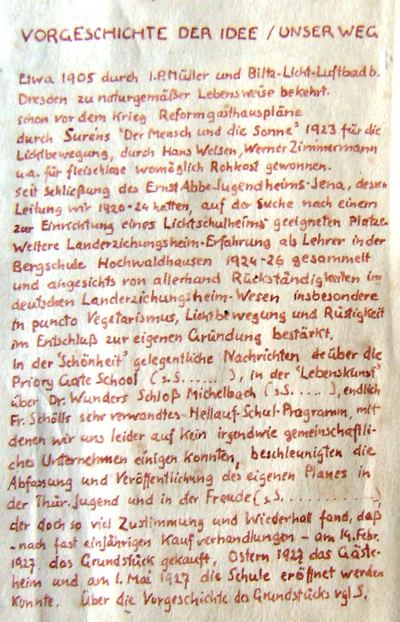 VORGESCHICHTE DER IDEE / UNSER WEG
Etwa 1905 durch I.P. Müller und Bilz-Licht-Luftbad b.
Dresden zu naturgemäßer Lebensweise bekehrt.
schon vor dem Krieg Reformgasthauspläne
durch Suréns "Der Mensch und die Sonne" 1923 für die
Lichtbewegung, durch Hans Welsen, Werner Zimmermann
u.a. für fleischlose womöglich Rohkost gewonnen.
Seit Schließung des Ernst Abbe Jugendheims-Jena, dessen
Leitung wir 1920-24 hatten, auf der Suche nach einem
zur Einrichtung eines Lichtschulheims geeigneten Platze.
Weitere Landerziehungsheim-Erfahrung als Lehrer in der
Bergschule Hochwaldhausen 1924-26 gesammelt
und angesichts von allerhand Rückständigkeiten im
deutschen Landerziehungsheim-Wesen insbesondere
in puncto Vegetarismus, Lichtbewegung und Rüstigkeit
im Entschluß zur eigenen Gründung bestärkt.
In der "Schönheit" gelegentliche Nachrichten über die
Priory Gate School (s.S. ......), in der "Lebenskunst"
über Dr. Wunders Schloß Michelbach (s.S. ....), endlich
Fr. Schölls sehr verwandtes Hellauf-Schul-Programm, mit
denen wir uns leider auf kein irgendwie gemeinschaftli-
ches Unternehmen einigen konnten, beschleunigten die
Abfassung und Veröffentlichung des eigenen Planes in
der Thür. Jugend und in der Freude (s.S. ............)
der doch so viel Zustimmung und Wiederhall fand, daß
- nach fast einjährigen Kaufverhandlungen - am 14. Febr.
1927 das Grundstück gekauft, Ostern 1927 das Gäste-
heim und am 1. Mai 1927 die Schule eröffnet werden
konnte. Über die Vorgeschichte des Grundstücks vgl. S.